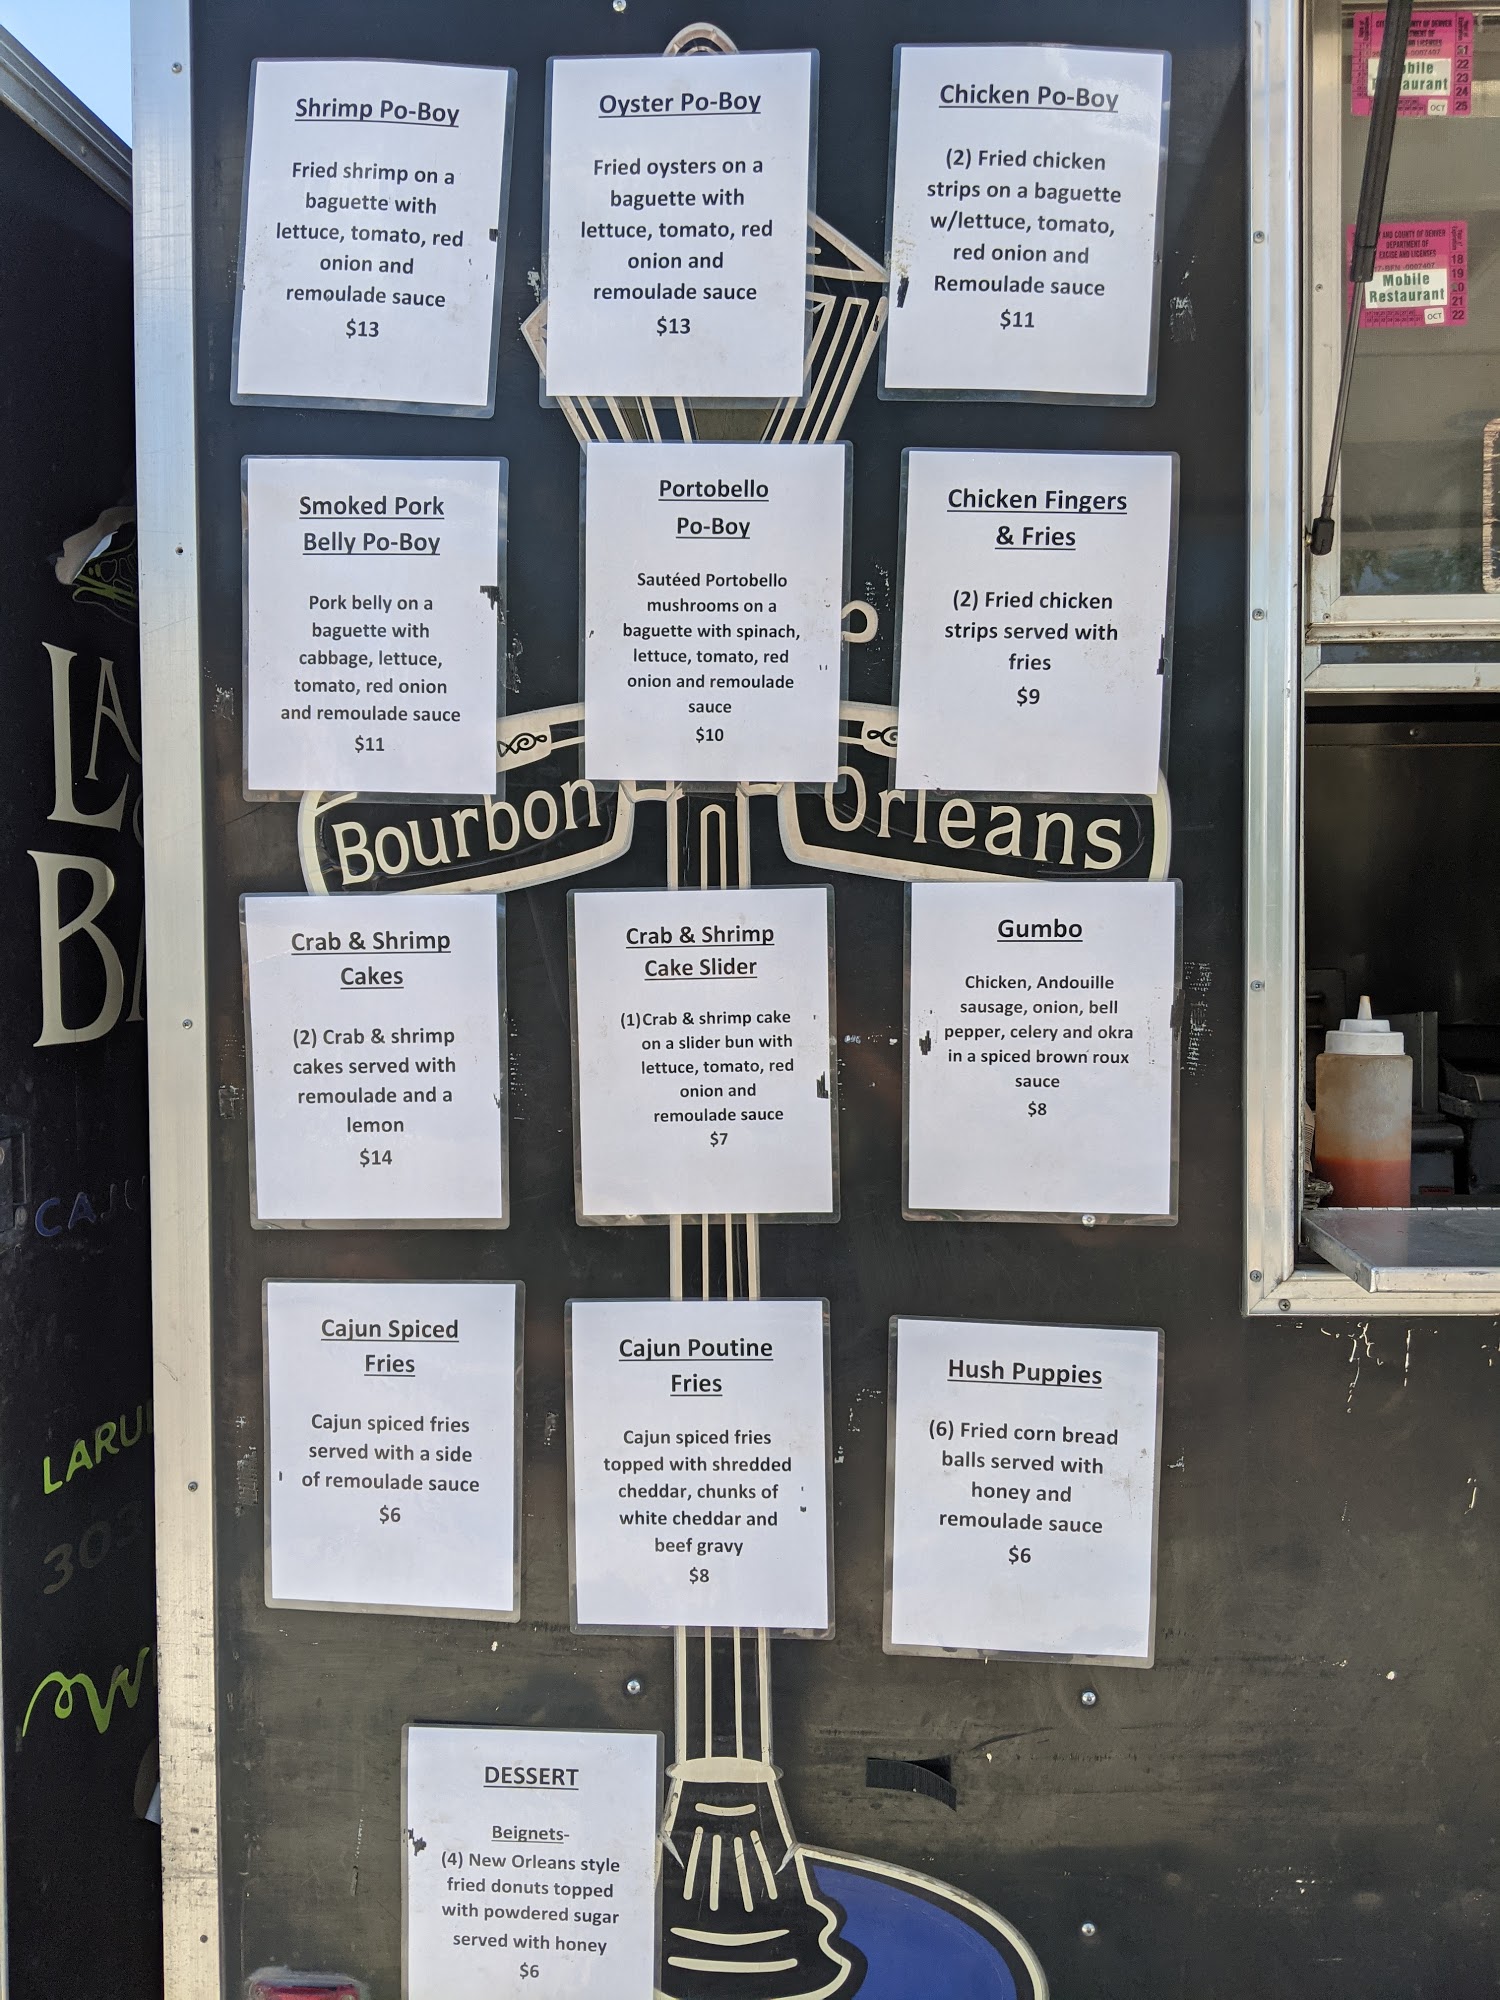 Shrimp Po-Boy
Fried shrimp on a
baguette with
lettuce, tomato, red
onion and
remoulade sauce
$13
Oyster Po-Boy
Fried oysters on a
baguette with
lettuce, tomato, red
onion and
remoulade sauce
$13
Chicken Po-Boy
(2) Fried chicken
strips on a baguette
w/lettuce, tomato,
red onion and
Remoulade sauce
$11
Smoked Pork
Belly Po-Boy
Pork belly on a
baguette with
cabbage, lettuce,
tomato, red onion
and remoulade sauce
$11
Portobello
Po-Boy
Sautéed Portobello
mushrooms on a
baguette with spinach,
lettuce, tomato, red
onion and remoulade
sauce
$10
Chicken Fingers
& Fries
(2) Fried chicken
strips served with
fries
$9
Bourbon
Orleans
Crab & Shrimp
Cakes
(2) Crab & shrimp
cakes served with
remoulade and a
lemon
$14
Crab & Shrimp
Cake Slider
(1)Crab & shrimp cake
on a slider bun with
lettuce, tomato, red
onion and
remoulade sauce
$7
Gumbo
Chicken, Andouille
sausage, onion, bell
pepper, celery and okra
in a spiced brown roux
sauce
$8
Cajun Spiced
Fries
Cajun spiced fries
served with a side
of remoulade sauce
$6
Cajun Poutine
Fries
Cajun spiced fries
topped with shredded
cheddar, chunks of
white cheddar and
beef gravy
$8
Hush Puppies
(6) Fried corn bread
balls served with
honey and
remoulade sauce
$6
DESSERT
Beignets-
(4) New Orleans style
fried donuts topped
with powdered sugar
served with honey
$6
LA
BA
CAJU
LARU
303
W
Mobile
Restaurant
OCT
22
23
24
25
AND COUNTY OF DENVER
DEPARTMENT OF
EXCISE AND LICENSES
Mobile
Restaurant
OCT
18
19
20
21
22